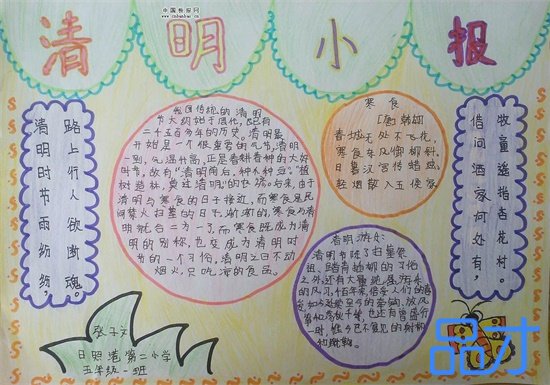 中国板报网
www.cnbanbao.cn
清明小报
清明时节雨纷纷，
路上行人欲断魂。
我国传统的清明
节大约始于周代，已有
二千五百多年的历史。清明最
开始是一个很重要的节气，清明
一到，气温升高，正是春耕春种的大好
时节，故有“清明前后，种瓜种豆”“植
树造林，莫过清明”的农谚。后来，由于
清明与寒食的日子接近，而寒食是民
间禁火扫墓的日子，渐渐的，寒食与清
明就合二为一了，而寒食既成为清
明的别称，也变成为清明时
节的一个习俗，清明之日不动
烟火，只吃凉的食品。
寒食
[唐]韩翃
春城无处不飞花，
寒食东风御柳斜。
日暮汉宫传蜡烛，
轻烟散入五侯家
借问酒家何处有，
牧童遥指杏花村。
清明
清明节除了扫墓祭
祖、踏青插柳的习俗
之外，还有大量
的风习，千百年来，倍受人们的喜
爱，如今延续至今的荡秋千、放风
也还有曾盛行
一时，如今已不复见的射柳
张子文
日照港第二小学
五年级一班
品才